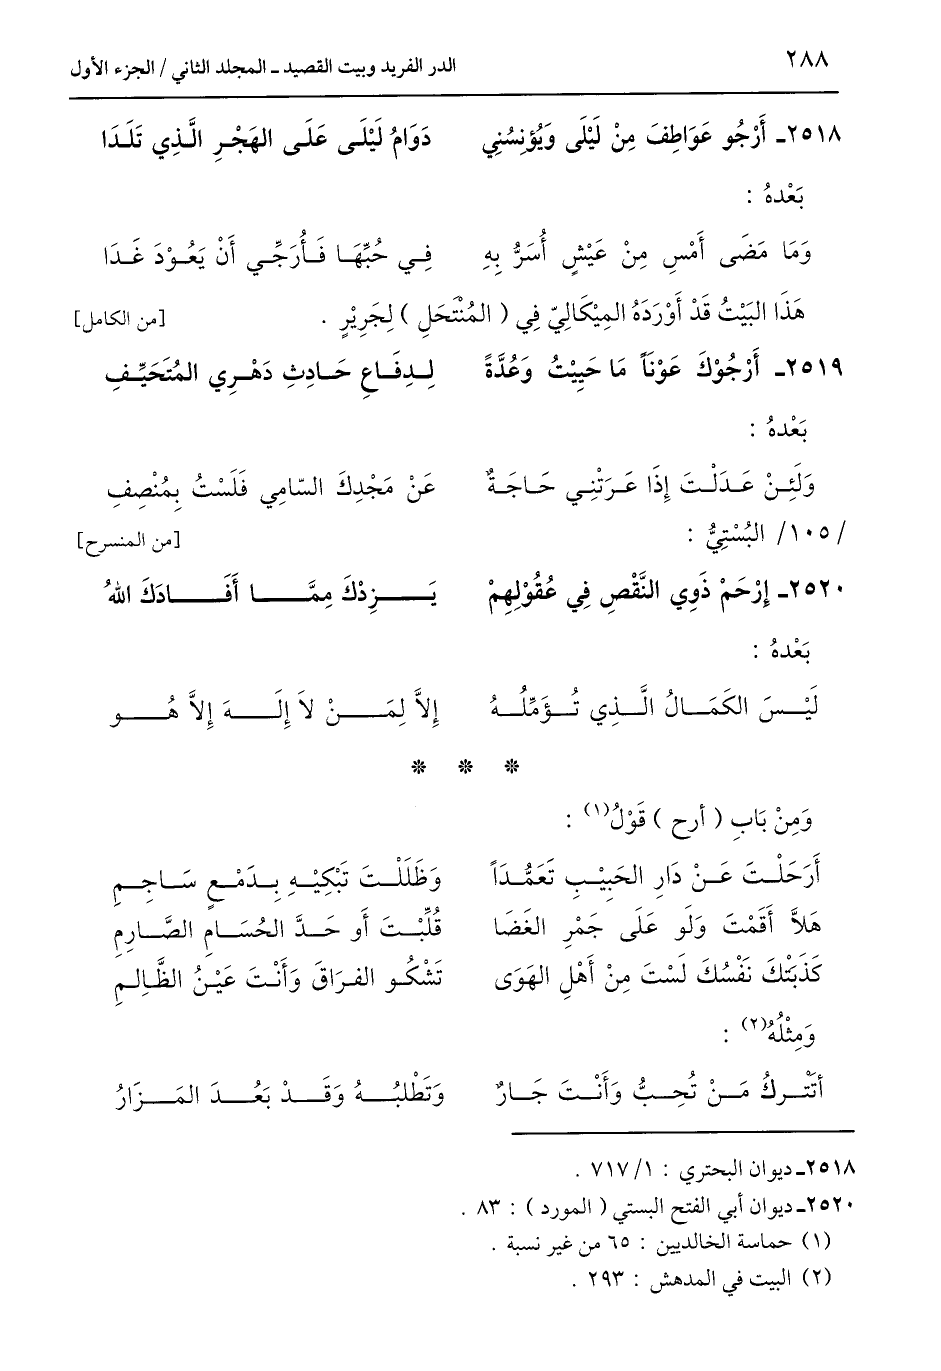 ٢٨٨ الدر الفريد وبيت القصيد ـ المجلد الثاني / الجزء الأول
٢٥١٨ـ أَرْجُو عَوَاطِفَ مِنْ لَيْلَى وَيُؤنِسُنِي دَوَامُ لَيْلَى عَلَى الهَجْرِ الَّذِي تَلَدَا
بَعْدهُ :
وَمَا مَضَى أَمْسِ مِنْ عَيْشٍ أُسَرُّ بِهِ فِي حُبِّهَا فَأُرَجِّي أَنْ يَعُوْدَ غَدَا
هَذَا البَيْتُ قَدْ أَوْرَدَهُ المِيْكَالِيّ فِي ( المُنْتَحَلِ ) لِجَرِيْرٍ . [من الكامل]
٢٥١٩ـ أَرْجُوْكَ عَوْنَاً مَا حَيِيْتُ وَعُدَّةً لِدِفَاعِ حَادِثِ دَهْرِي المُتَحَيِّفِ
بَعْدهُ :
وَلَئِنْ عَدَلْتَ إِذَا عَرَتْنِي حَاجَةٌ عَنْ مَجْدِكَ السَّامِي فَلَسْتُ بِمُنْصِفِ
/١٠٥/ البُسْتِيُّ : [من المنسرح]
٢٥٢٠ـ إِرْحَمْ ذَوِي النَّقْصِ فِي عُقُوْلِهِمْ يَزِدْكَ مِمَّا أَفَادَكَ اللهُ
بَعْدهُ :
لَيْسَ الكَمَالُ الَّذِي تُؤَمِّلُهُ إِلاَّ لِمَنْ لاَ إِلَهَ إِلاَّ هُو
* * *
وَمِنْ بَابِ ( أرح ) قَوْلُ(١) :
أَرَحَلْتَ عَنْ دَارِ الحَبِيْبِ تَعَمُّدَاً وَظَلَلْتَ تَبْكِيْهِ بِدَمْعٍ سَاجِمِ
هَلاَّ أَقَمْتَ وَلَو عَلَى جَمْرِ الغَضَا قُلِّبْتَ أَو حَدَّ الحُسَامِ الصَّارِمِ
كَذَبَتْكَ نَفْسُكَ لَسْتَ مِنْ أَهْلِ الهَوَى تَشْكُو الفِرَاقَ وَأَنْتَ عَيْنُ الظَّالِمِ
وَمِثْلُهُ(٢) :
أتَتْرِكُ مَنْ تُحِبُّ وَأَنْتَ جَارُ وَتَطْلبُهُ وَقَدْ بَعُدَ المَزَارُ
٢٥١٨ـ ديوان البحتري : ١/ ٧١٧ .
٢٥٢٠ـ ديوان أبي الفتح البستي ( المورد ) : ٨٣ .
(١) حماسة الخالديين : ٦٥ من غير نسبة .
(٢) البيت في المدهش : ٢٩٣ .